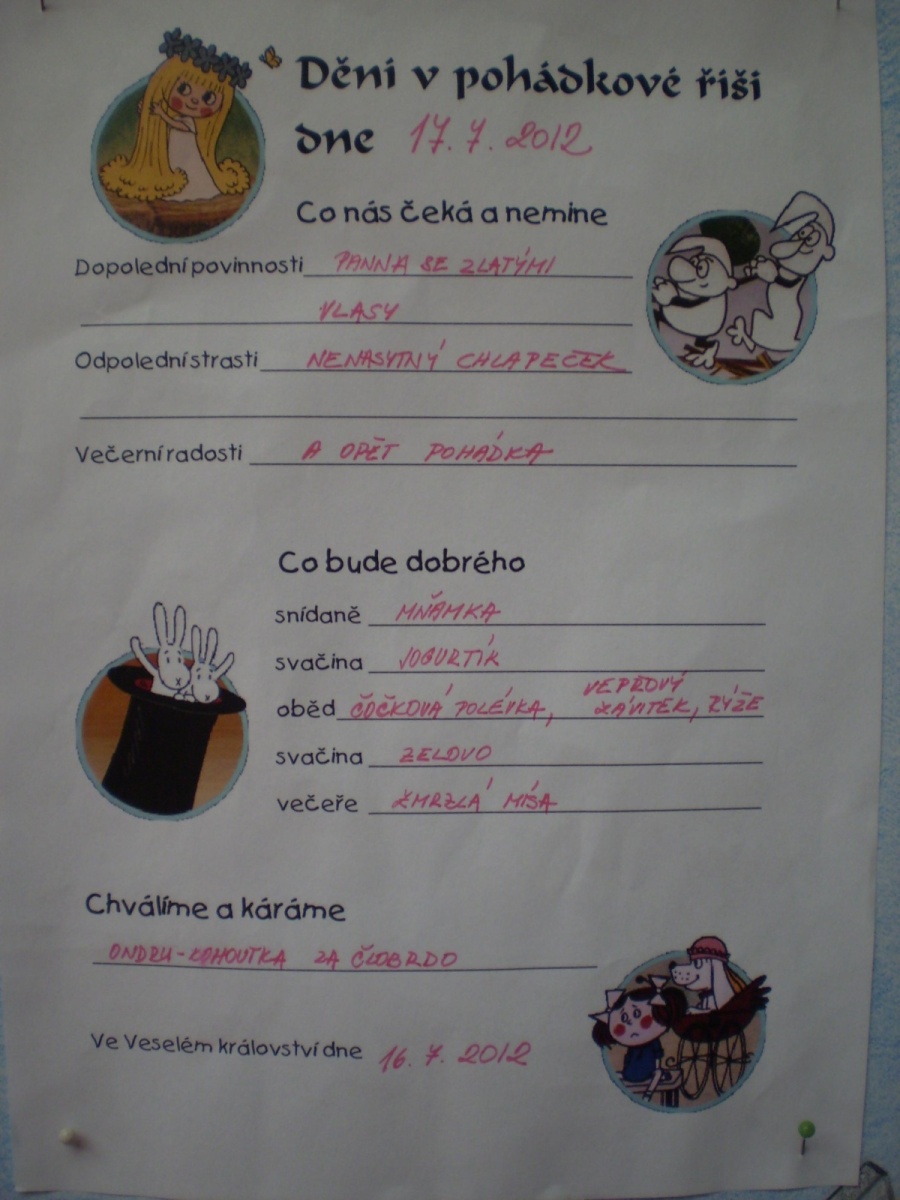 Dění v pohádkové říši
dne 17. 7. 2012
Co nás čeká a nemine
Dopolední povinnosti PANNA SE ZLATÝMI
VLASY
Odpolední strasti NENASYTNÝ CHLAPEČEK
Večerní radosti A OPĚT POHÁDKA
Co bude dobrého
snídaně MŇAMKA
svačina JOGURTÍK
oběd ČOČKOVÁ POLÉVKA, VEPŘOVÝ ZÁVITEK, RÝŽE
svačina ZELOVO
večeře ZMRZLÁ MÍSA
Chválíme a káráme
ONDRU-KOHOUTKA ZA ČLOBRDO
Ve Veselém království dne 16. 7. 2012